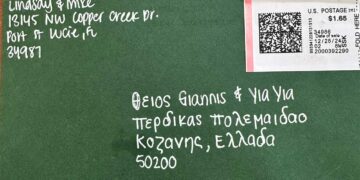 Lindsay & Mike
13145 NW Copper Creek Dr.
Port St Lucie, FL
34987
U.S. POSTAGE
$1.65
34986
12/26/24
2000392290
FOLD HERE
Θειος Giannis & Για Για
περδικας πολεμαιδαο
Κοζανης, Ελλαδα
50200